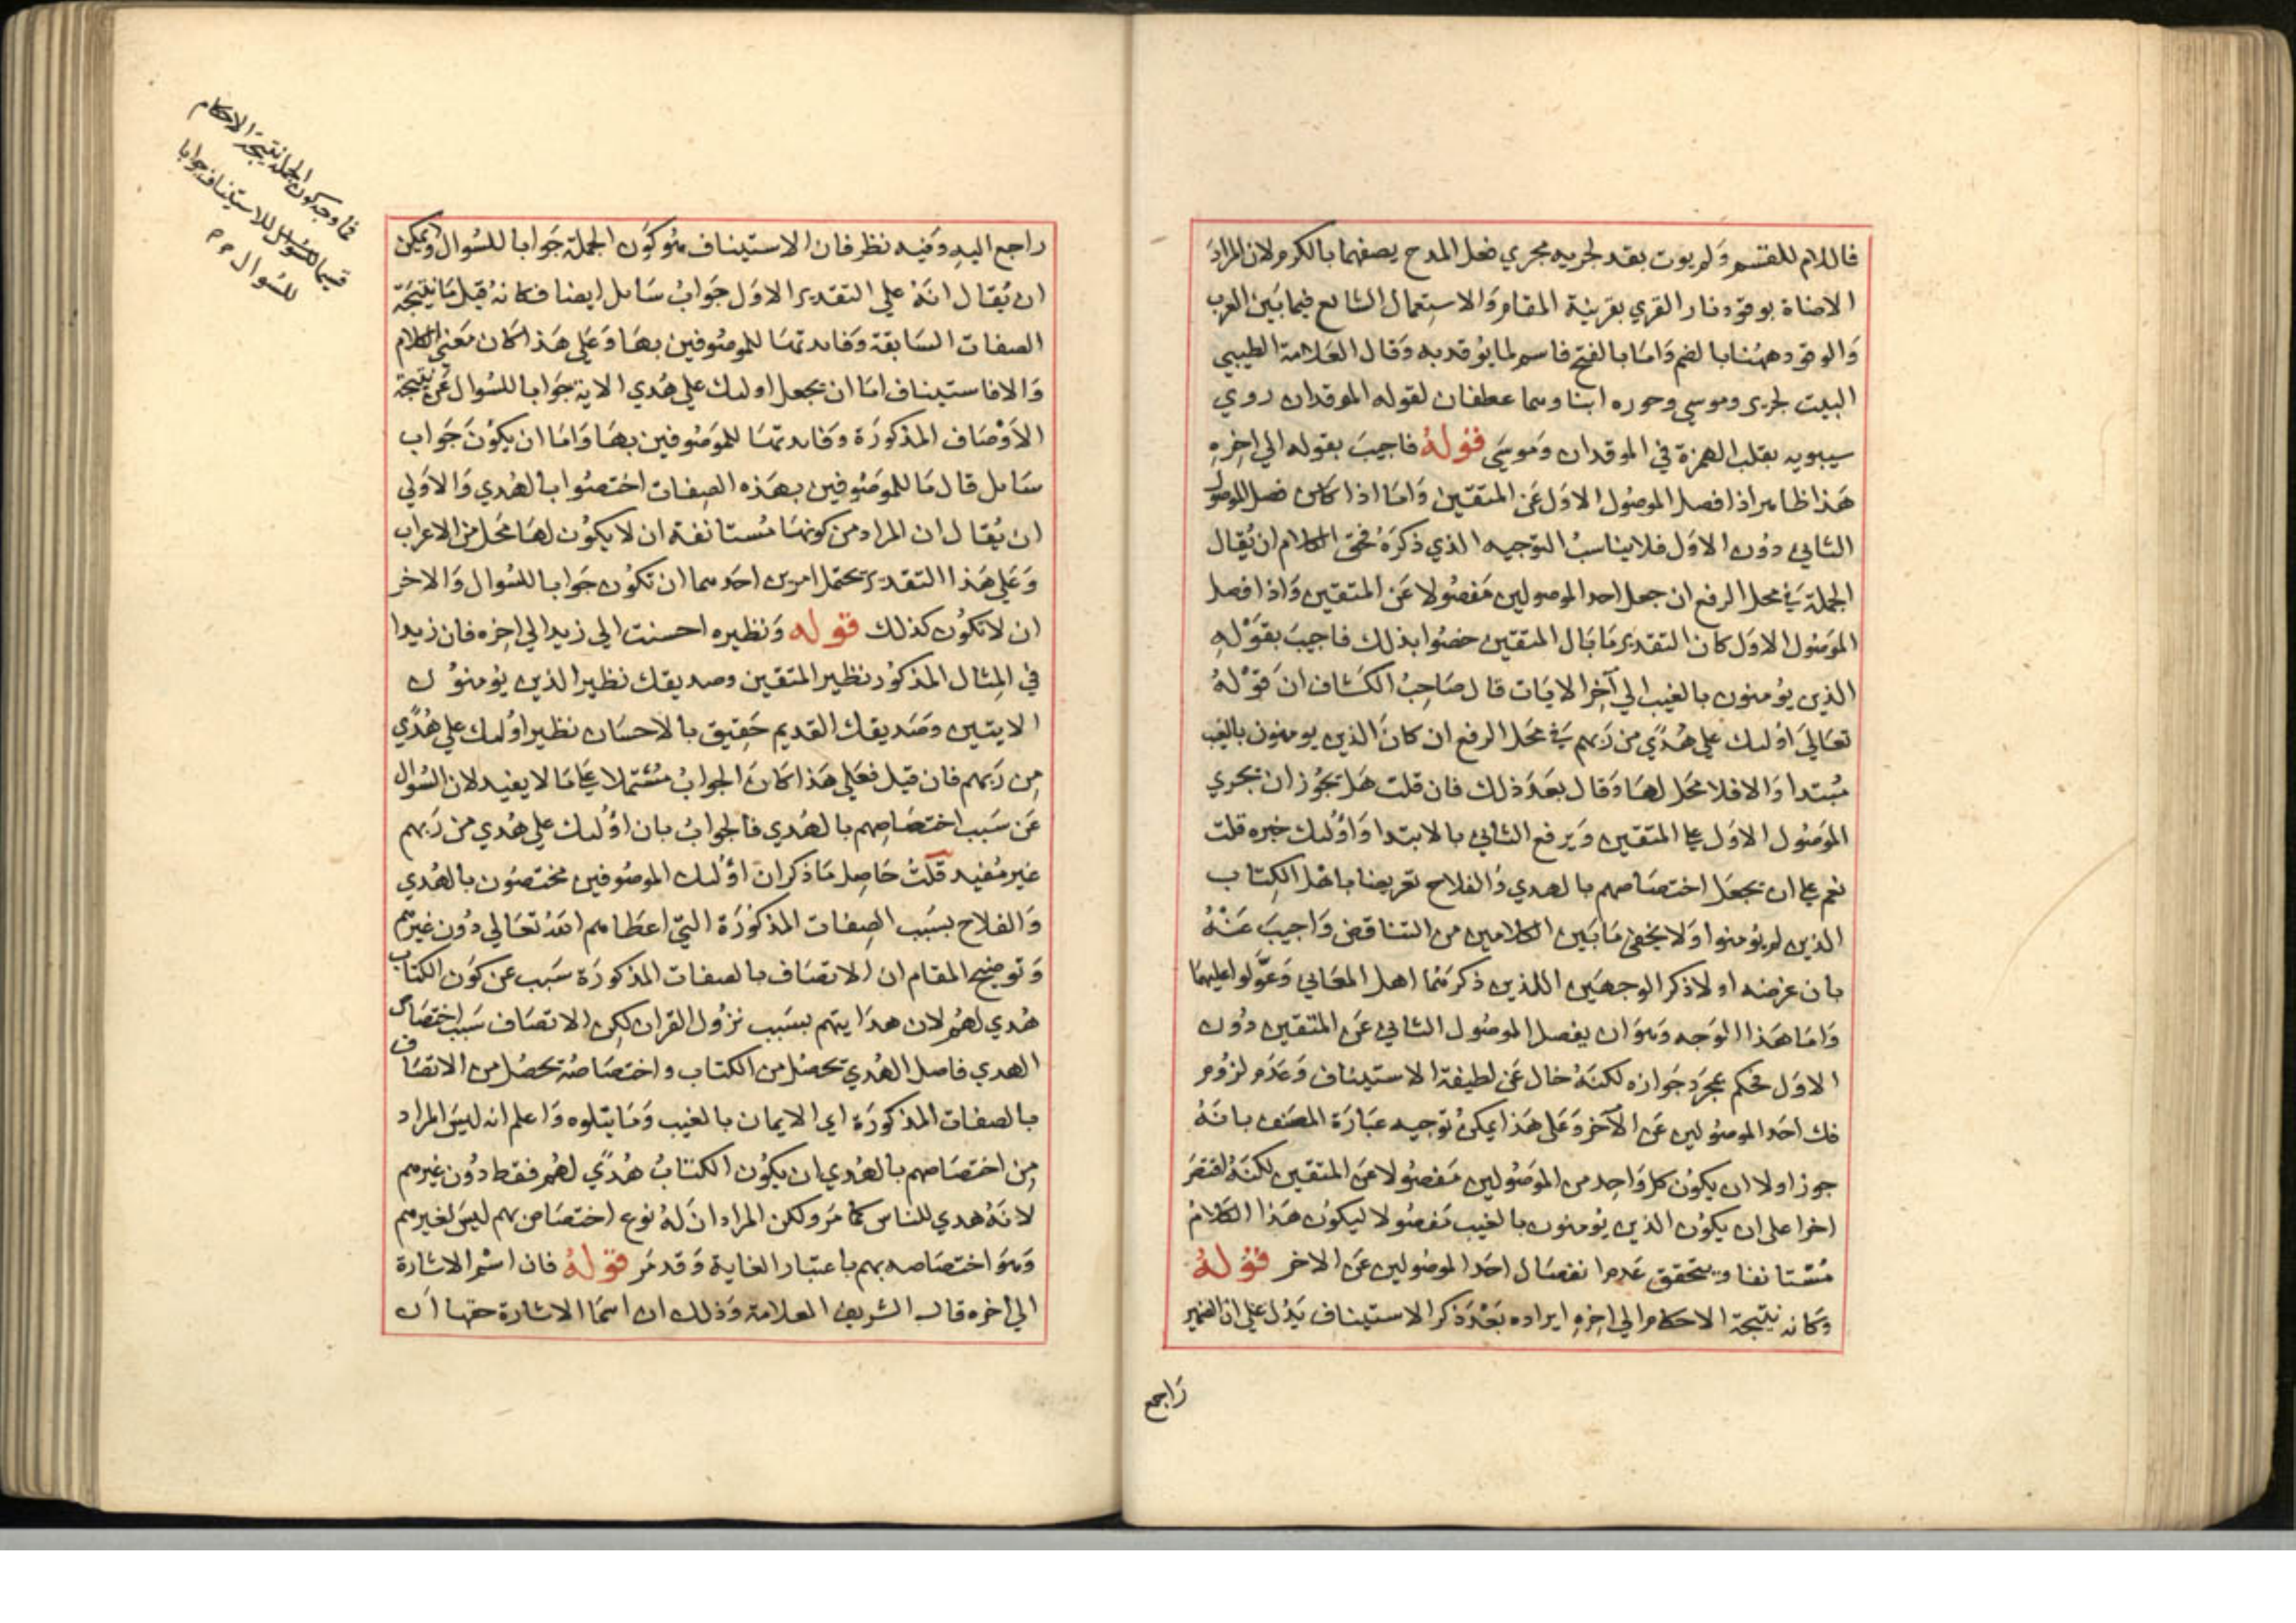 فاللام للقسم ولم يوت بقد لجريه مجري فعل المدح يصفهما بالكرم ولان المراد
الاضاة بوقود نار القري بقرينة المقام والاستعمال الشايع فيما بين العرب
والوقود ههنا بالضم واما بالفتح فاسم لما يوقد به وقال العلامة الطيبي
البيت لجرير وموسي وحوره ابنا وهما عطفان لقوله الموقدان روي
سيبويه بقلب الهمزة في الموقدان وموسي قوله فاجيب بقوله الي اخره
هذا ظاهر اذا فصل الموصول الاول عن المتقين واما اذا كان فصل الموصول
الثاني دون الاول فلا يناسب التوجيه الذي ذكره فحق الكلام ان يقال
الجملة في محل الرفع ان جعل احد الموصولين مفصولا عن المتقين واذا فصل
الموصول الاول كان التقدير ما بال المتقين خصوا بذلك فاجيب بقوله
الذين يؤمنون بالغيب الي آخر الايات قال صاحب الكشاف ان قوله
تعالي اولىك علي هدي من ربهم في محل الرفع ان كان الذين يومنون بالغيب
مبتدا والا فلا محل لها وقال بعد ذلك فان قلت هل يجوز ان يجري
الموصول الاول علي المتقين ويرفع الثاني بالابتدا واولىك خبره قلت
نعم علي ان يجعل اختصاصهم بالهدي والفلاح تعريضا باهل الكتاب
الذين لم يؤمنوا ولا يخفي ما بين الكلامين من التناقض واجيب عنه
بان غرضه اولا ذكر الوجهين اللذين ذكرهما اهل المعاني وعولوا عليهما
واما هذا الوجه وهو ان يفصل الموصول الثاني عن المتقين دون
الاول فحكم بمجرد جوازه لكنه خال عن لطيفة الاستيناف وعدم لزوم
فك احد الموصولين عن الآخر وعلي هذا يمكن توجيه عبارة المصنف بانه
جوز اولا ان يكون كل واحد من الموصولين مفصولا عن المتقين لكنه اقتصر
اخرا على ان يكون الذين يؤمنون بالغيب مفصولا ليكون هذا الكلام
مستانفا ويتحقق عدم انفصال احد الموصولين عن الاخر قوله
وكانه نتيجة الاحكام الي اخره ايراده بعد ذكر الاستيناف يدل علي ان الضمير
راجع
راجع اليه وفيه نظر فان الاستيناف هو كون الجملة جوابا للسوال ويمكن
ان يقال انه علي التقدير الاول جواب سايل ايضا فكانه قيل ما نتيجة
الصفات السابقة وفايدتها للموصوفين بها وعلي هذا كان معني الكلام
والا فاستيناف اما ان يجعل اولىك علي هدي الاية جوابا للسوال عن نتيجة
الاوصاف المذكورة وفايدتها للموصوفين بها واما ان يكون جواب
سايل قال ما للموصوفين بهذه الصفات اختصوا بالهدي والاولي
ان يقال ان المراد من كونها مستانفة ان لا يكون لها محل من الاعراب
وعلي هذا التقدير يحتمل امرين احدهما ان تكون جوابا للسوال والاخر
ان لا تكون كذلك قوله ونظيره احسنت الي زيد الي اخره فان زيدا
في المثال المذكور نظير المتقين وصديقك نظير الذين يؤمنون
الايتين وصديقك القديم حقيق بالاحسان نظير اولىك علي هدي
من ربهم فان قيل فعلي هذا كان الجواب مشتملا علي ما لا يفيد لان السوال
عن سبب اختصاصهم بالهدي فالجواب بان اولىك علي هدي من ربهم
غير مفيد قلت حاصل ما ذكر ان اولىك الموصوفين مختصون بالهدي
والفلاح بسبب الصفات المذكورة التي اعطاهم الله تعالي دون غيرهم
وتوضيح المقام ان الاتصاف بالصفات المذكورة سبب عن كون الكتاب
هدي لهم لان هدايتهم بسبب نزول القران لكن الاتصاف سبب اختصاص
الهدي فاصل الهدي تحصل من الكتاب واختصاصه تحصل من الاتصاف
بالصفات المذكورة اي الايمان بالغيب وما يتلوه واعلم انه ليس المراد
من اختصاصهم بالهدي ان يكون الكتاب هدي لهم فقط دون غيرهم
لانه هدي للناس كما مر ولكن المراد ان له نوع اختصاص بهم ليس لغيرهم
وهو اختصاصه بهم باعتبار الغاية وقد مر قوله فان اسم الاشارة
الي اخره قال الشريف العلامة وذلك ان اسما الاشارة حقها ان
فما وجه كون الجملة نتيجة الاحكام
قسيما للاستيناف جوابا
للسوال م م